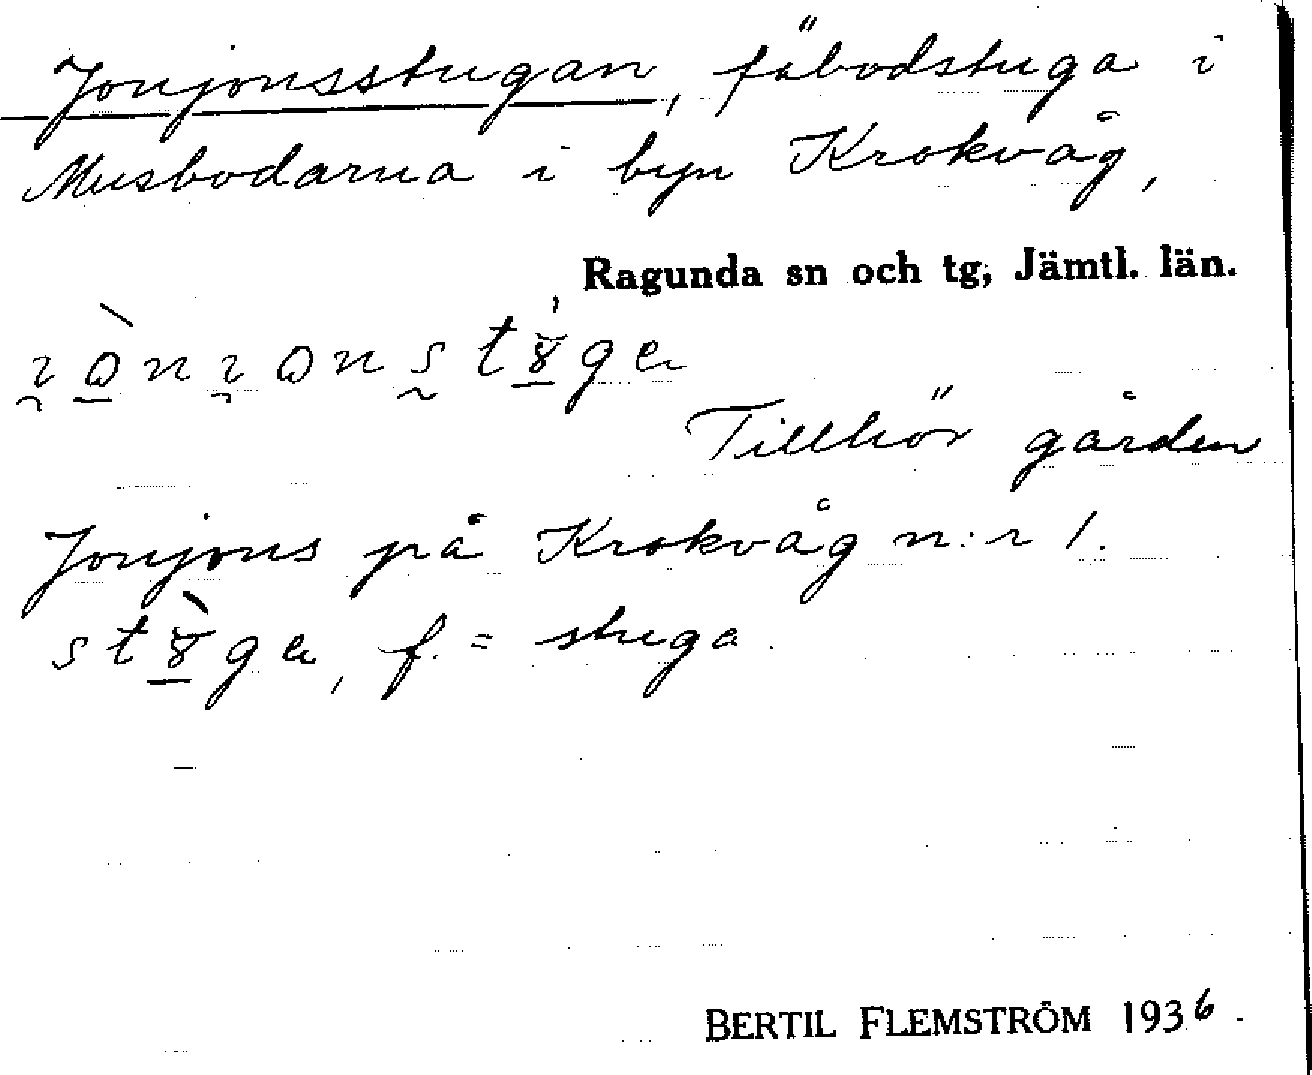 Jonjonsstugan, fäbodstuga i
Musbodarna i byn Krokvåg,
Ragunda sn och tg, Jämtl. län.
Tillhör gården
Jonjons på Krokvåg n:r 1.
f. = stuga
BERTIL FLEMSTRÖM 1936.